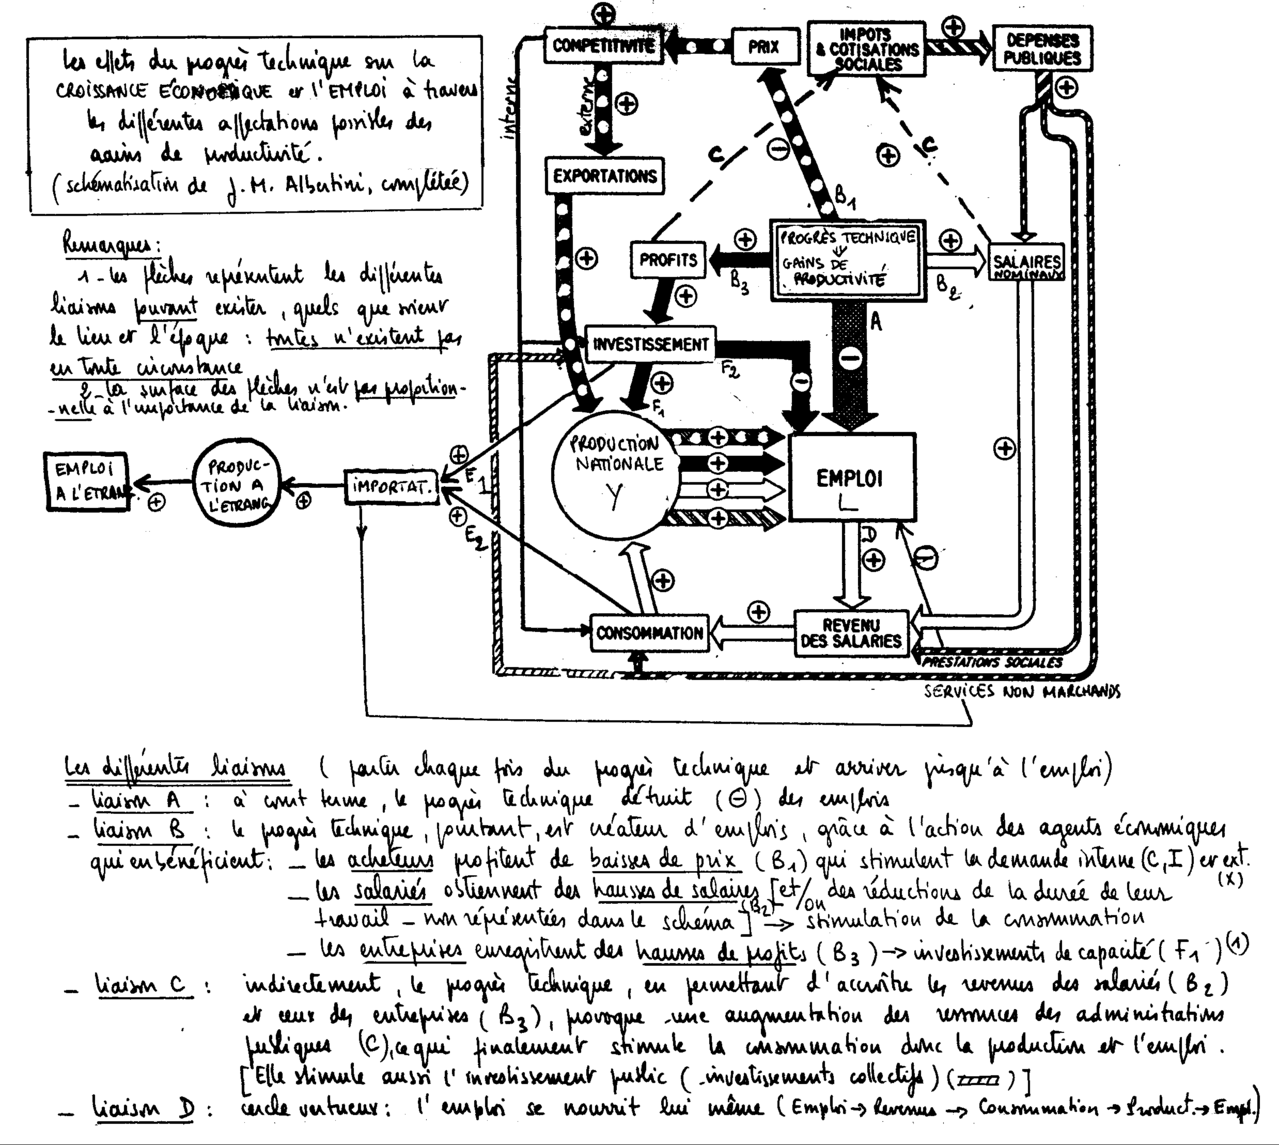 Les effets du progrès technique sur la
CROISSANCE ÉCONOMIQUE et l'EMPLOI à travers
les différentes affectations possibles des
gains de productivité.
(schématisation de J. M. Albertini, complétée)
Remarques :
1 - les flèches représentent les différentes
liaisons pouvant exister, quels que soient
le lieu et l'époque : toutes n'existent pas
en toute circonstance
2 - la surface des flèches n'est pas proportion-
-nelle à l'importance de la liaison.
COMPETITIVITÉ
PRIX
IMPOTS
& COTISATIONS
SOCIALES
DEPENSES
PUBLIQUES
interne
externe
EXPORTATIONS
C
C
B1
PROFITS
B3
PROGRÈS TECHNIQUE
GAINS DE
PRODUCTIVITÉ
B2
SALAIRES
NOMINAUX
A
INVESTISSEMENT
F2
F1
PRODUCTION
NATIONALE
Y
EMPLOI
L
D
EMPLOI
A L'ETRANG
PRODUC-
TION A
L'ETRANG
IMPORTAT.
E1
E2
CONSOMMATION
REVENU
DES SALARIES
PRESTATIONS SOCIALES
SERVICES NON MARCHANDS
Les différentes liaisons ( partir chaque fois du progrès technique et arriver jusqu'à l'emploi)
- liaison A : à court terme, le progrès technique détruit (⊖) des emplois
- liaison B : le progrès technique, pourtant, est créateur d'emplois, grâce à l'action des agents économiques
qui en bénéficient : - les acheteurs profitent de baisses de prix (B1) qui stimulent la demande interne (C, I) et ext.
(X)
- les salariés obtiennent des hausses de salaires (B2) [et/ou des réductions de la durée de leur
travail - non représentées dans le schéma] → stimulation de la consommation
- les entreprises enregistrent des hausses de profits (B3) → investissements de capacité (F1) (1)
- liaison C : indirectement, le progrès technique, en permettant d'accroître les revenus des salariés (B2)
et ceux des entreprises (B3), provoque une augmentation des ressources des administrations
publiques (C), ce qui finalement stimule la consommation donc la production et l'emploi.
[Elle stimule aussi l'investissement public (investissements collectifs) ( )]
- liaison D : cercle vertueux : l'emploi se nourrit lui même (Emploi → Revenus → Consommation → Product. → Empl.)